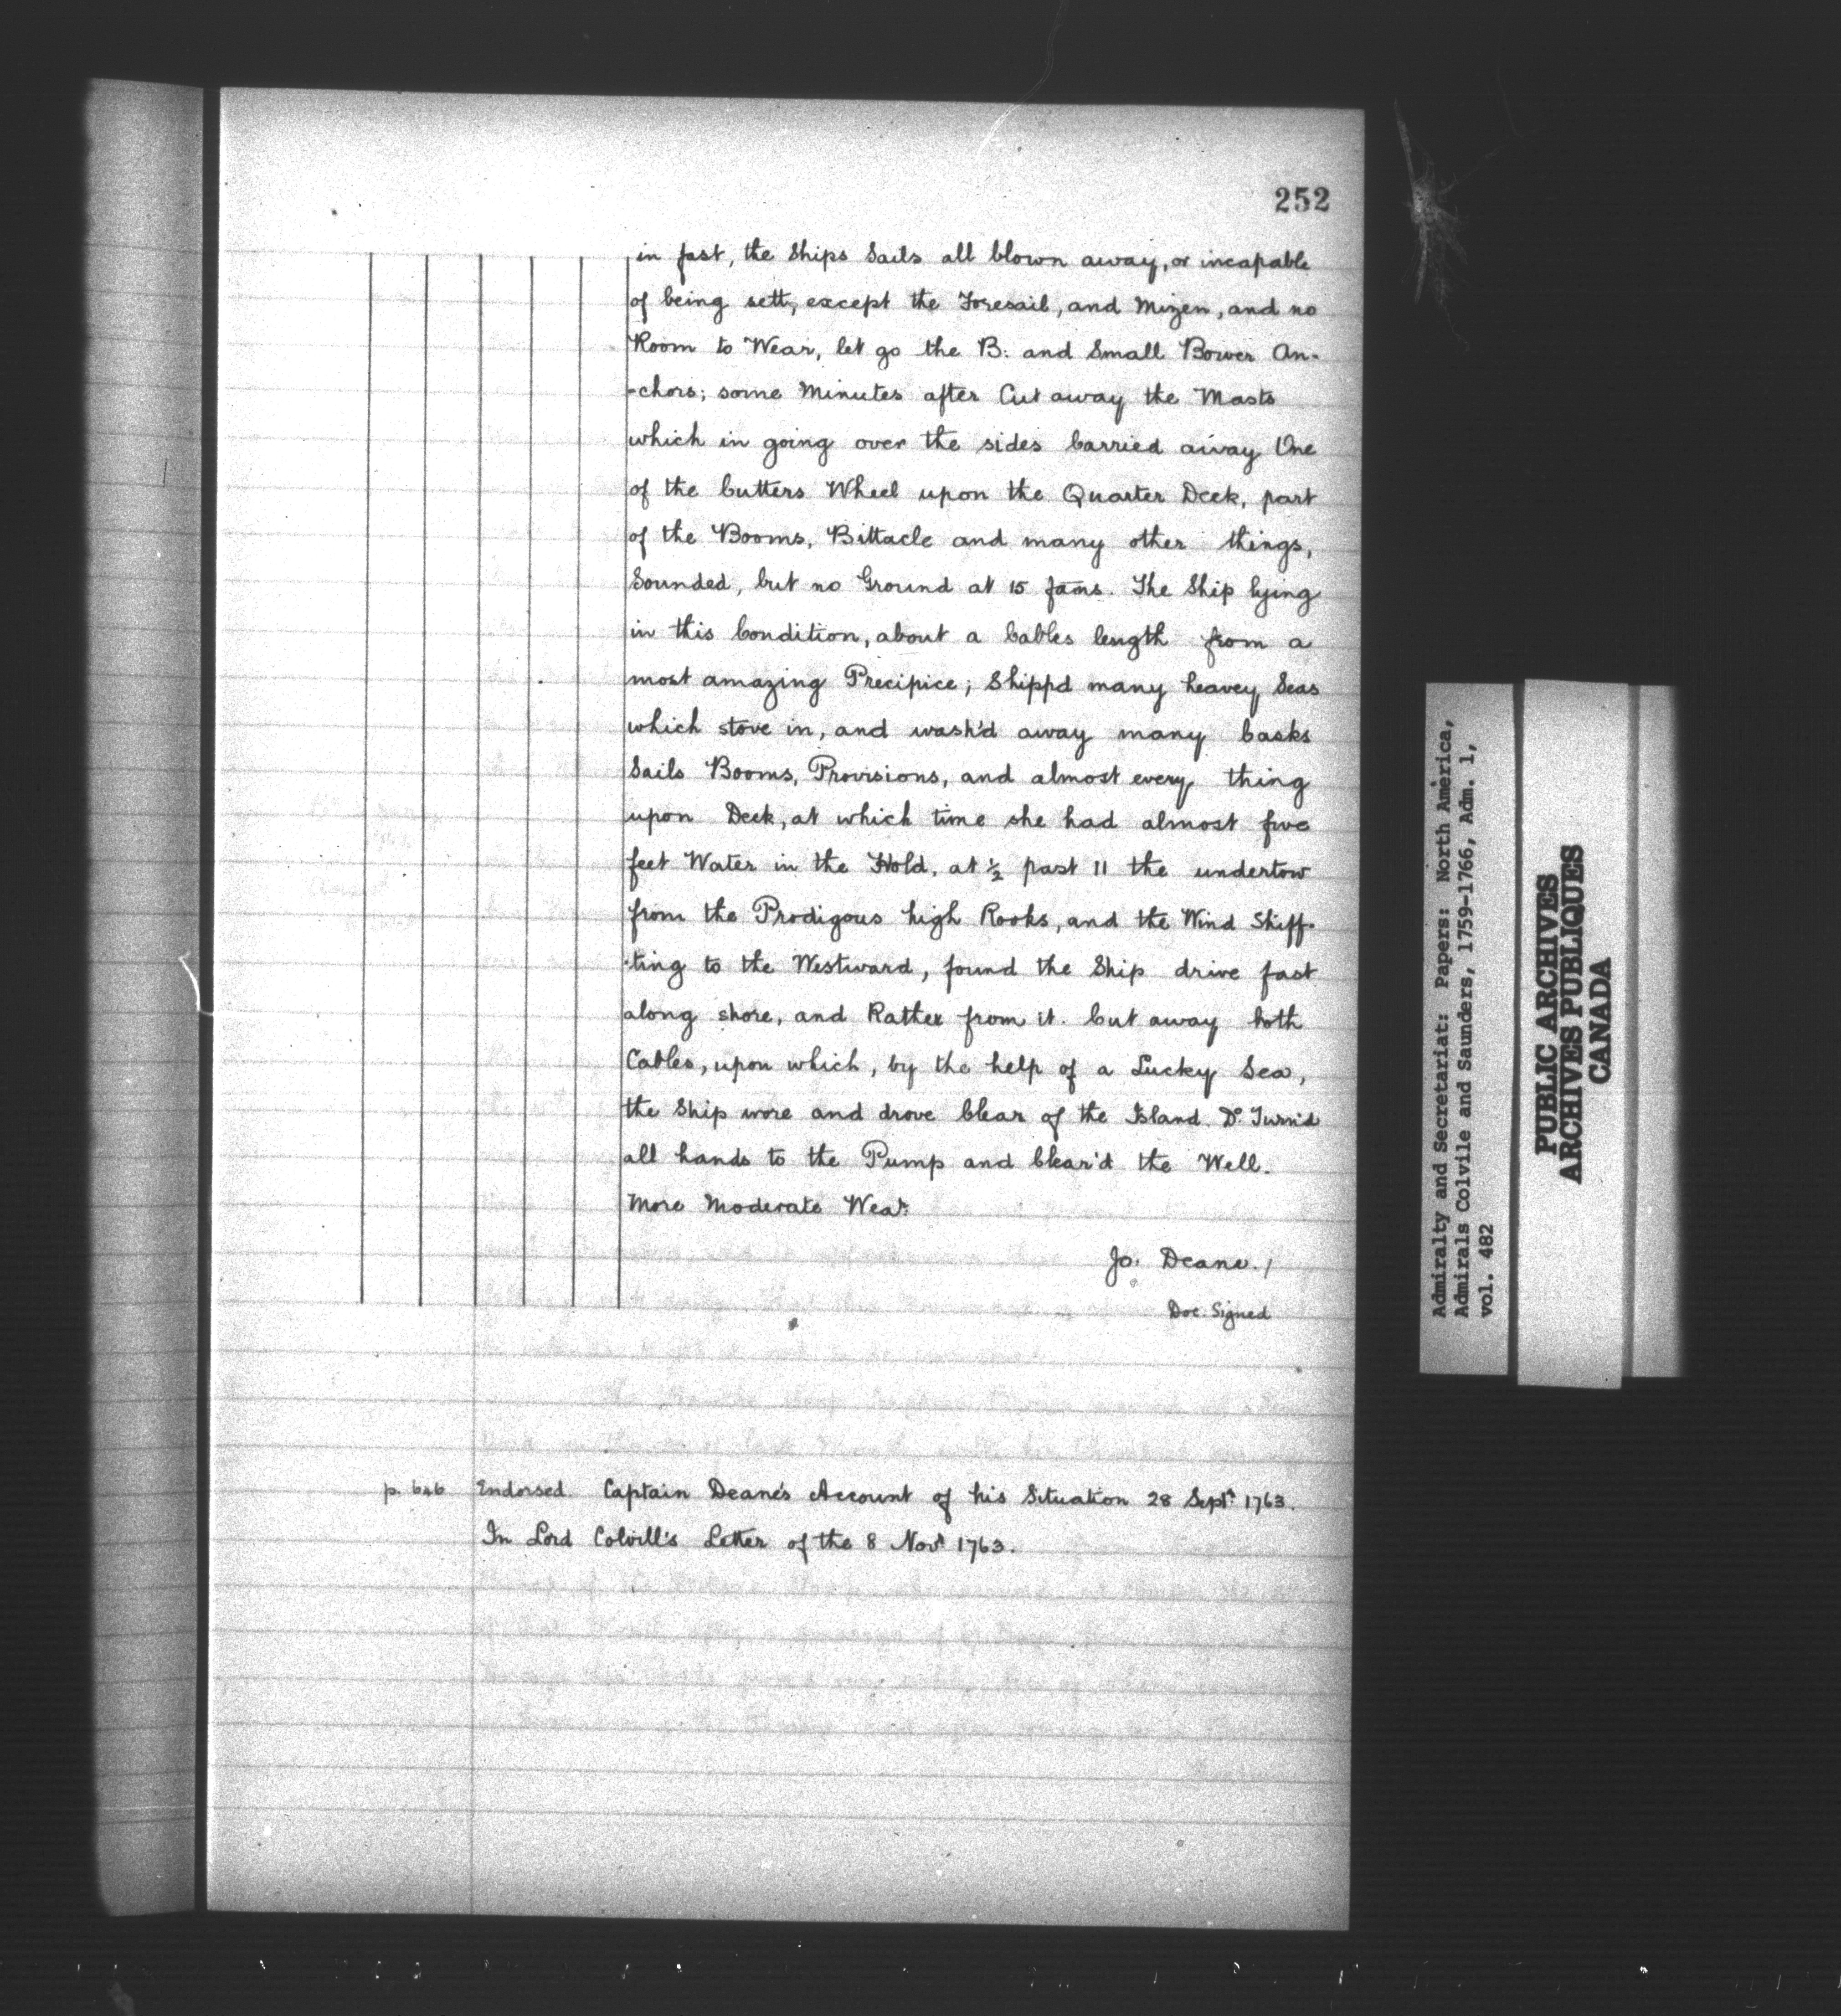 252
in fast, the Ships Sails all blown away, or incapable
of being sett, except the Foresail, and Mizen, and no
Room to Wear, let go the B. and Small Bower An-
-chors; some Minutes after Cut away the Masts
which in going over the sides Carried away One
of the Cutters Wheel upon the Quarter Deck, part
of the Booms, Bittacle and many other things,
Sounded, but no Ground at 15 fams. The Ship lying
in this Condition, about a Cables length from a
most amazing Precipice; Shipp'd many heavey Seas
which stove in, and wash'd away many Casks
Sails Booms, Provisions, and almost every thing
upon Deck, at which time she had almost five
feet Water in the Hold, at ½ past 11 the undertow
from the Prodigous high Rooks, and the Wind Shiff-
-ting to the Westward, found the Ship drive fast
along shore, and Rather from it. Cut away both
Cables, upon which, by the help of a Lucky Sea,
the Ship wore and drove Clear of the Island. Do. Turn'd
all hands to the Pump and Clear'd the Well.
More Moderate Wear.
Jo. Deane./
Doc. Signed
p. 646 Endorsed Captain Deane's Account of his Situation 28 Septr 1763.
In Lord Colvill's Letter of the 8 Novr 1763.
Admiralty and Secretariat: Papers: North America,
Admirals Colvile and Saunders, 1759-1766, Adm. 1,
vol. 482
PUBLIC ARCHIVES
ARCHIVES PUBLIQUES
CANADA